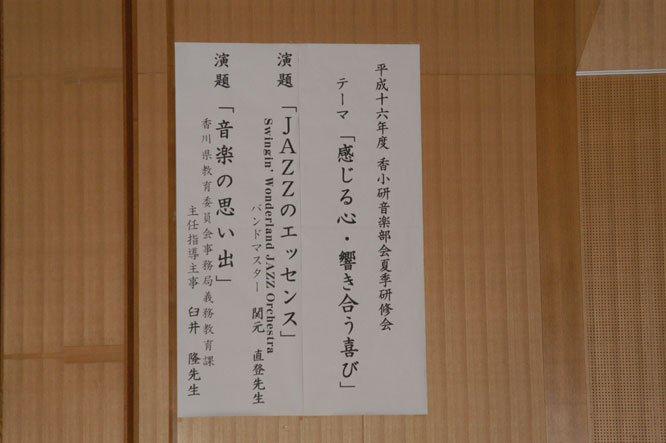 平成十六年度 香小研音楽部会夏季研修会
テーマ「感じる心・響き合う喜び」
演題「JAZZのエッセンス」
Swingin' Wonderland JAZZ Orchestra
バンドマスター 関元 直登先生
演題「音楽の思い出」
香川県教育委員会事務局義務教育課
主任指導主事 臼井 隆先生